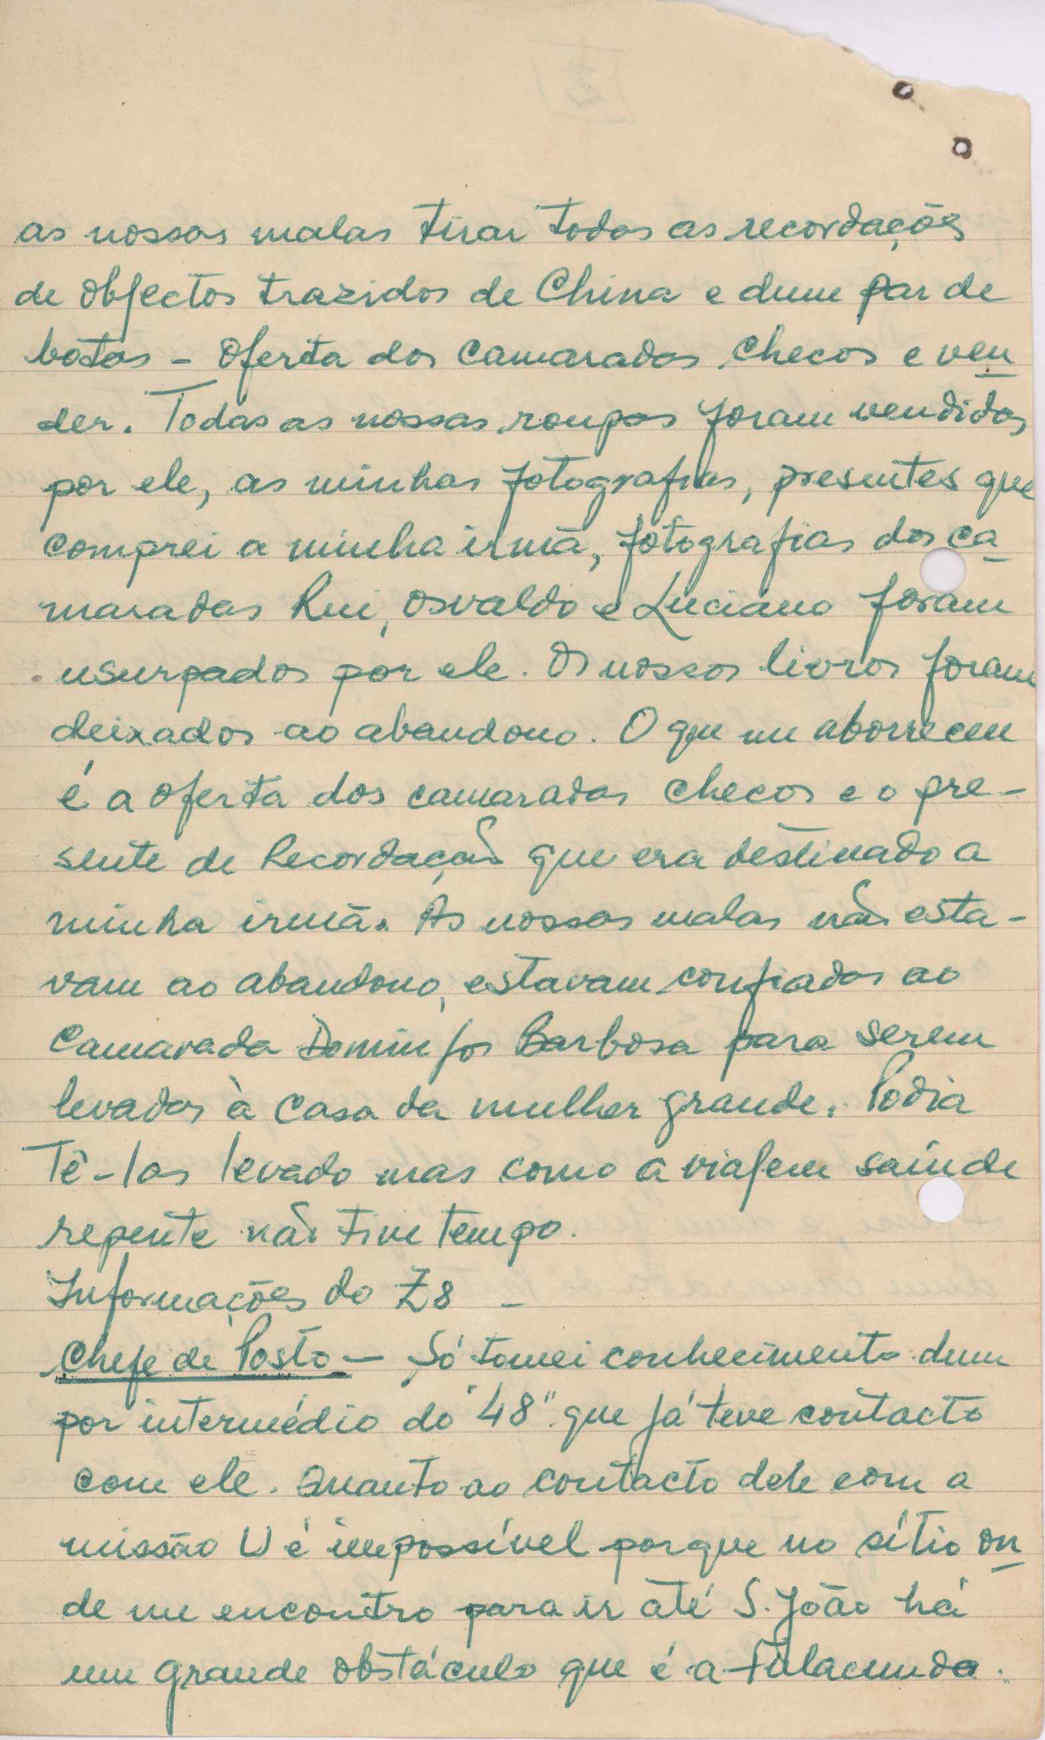 as nossas malas tirar todas as recordações
de objectos trazidos de China e dum par de
botas - oferta dos camaradas checos e ven
der. Todas as nossas roupas foram vendidas
por ele, as minhas fotografias, presentes que
comprei a minha irmã, fotografias dos ca
maradas Rui, Osvaldo e Luciano foram
usurpados por ele. Os nossos livros foram
deixados ao abandono. O que me aborreceu
é a oferta dos camaradas checos e o pre-
sente de Recordação que era destinado a
minha irmã. As nossas malas não esta-
vam ao abandono, estavam confiados ao
Camarada Domingos Barbosa para serem
levados à casa da mulher grande. Podia
Tê-los levado mas como a viajem saíu de
repente não tive tempo.
Informações do Z8 -
Chefe de Posto - Só tomei conhecimento dum
por intermédio do "48" que já teve contacto
com ele. Quanto ao contacto dele com a
missão U é impossível porque no sítio on
de me encontro para ir até S. João há
um grande obstáculo que é a Fulacunda.